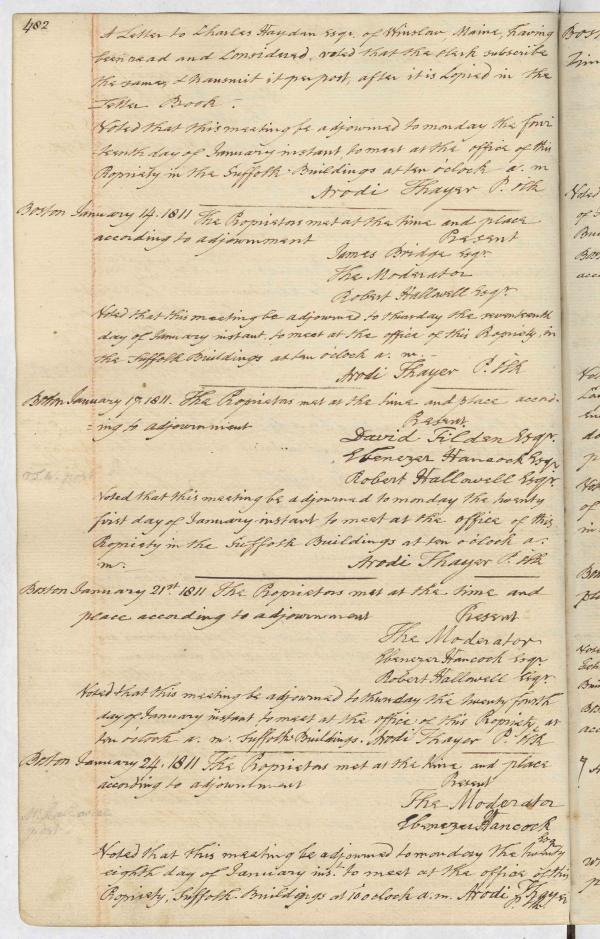 482
A Letter to Charles Hayden Esqr. of Winslow, Maine, having
been read and Considered, voted that the Clerk subscribe
the same, & transmit it per post, after it is Copied in the
Letter Book.
Voted that this meeting be adjourned to monday the four
-teenth day of January instant to meet at the office of this
Propriety in the Suffolk Buildings at ten oClock a. m
Arodi Thayer P. Clk
Boston January 14. 1811 The Proprietors met at the time and place
according to adjournment Present
James Bridge Esqr.
The Moderator
Robert Hallowell Esqr.
Voted that this meeting be adjourned to thursday the seventeenth
day of January instant, to meet at the office of this Propriety, in
the Suffolk Buildings at ten oClock a. m.
Arodi Thayer P. Clk
Boston January 17. 1811. The Proprietors met at the time and place accord-
=ing to adjournment Present
David Tilden Esqr.
Ebenezer Hancock Esqr
Robert Hallowell Esqr.
Voted that this meeting be adjourned to monday the twenty
first day of January instant to meet at the office of this
Propriety in the Suffolk Buildings at ten oClock a.
m. Arodi Thayer P. Clk
Boston January 21st 1811 The Proprietors met at the time and
place according to adjournment Present
The Moderator
Ebenezer Hancock Esqr.
Robert Hallowell Esqr.
Voted that this meeting be adjourned to thursday the twenty fourth
day of January instant to meet at the office of this Propriety, at
ten oClock a. m. Suffolk Buildings. Arodi Thayer P. Clk
Boston January 24. 1811 The Proprietors met at the time and place
according to adjournment Present
The Moderator
Ebenezer Hancock
Esqr
Voted that this meeting be adjourned to monday the twenty
eighth day of January inst. to meet at the office of this
Propriety, Suffolk Buildings at 10 oclock a. m. Arodi Thayer
P. Clk